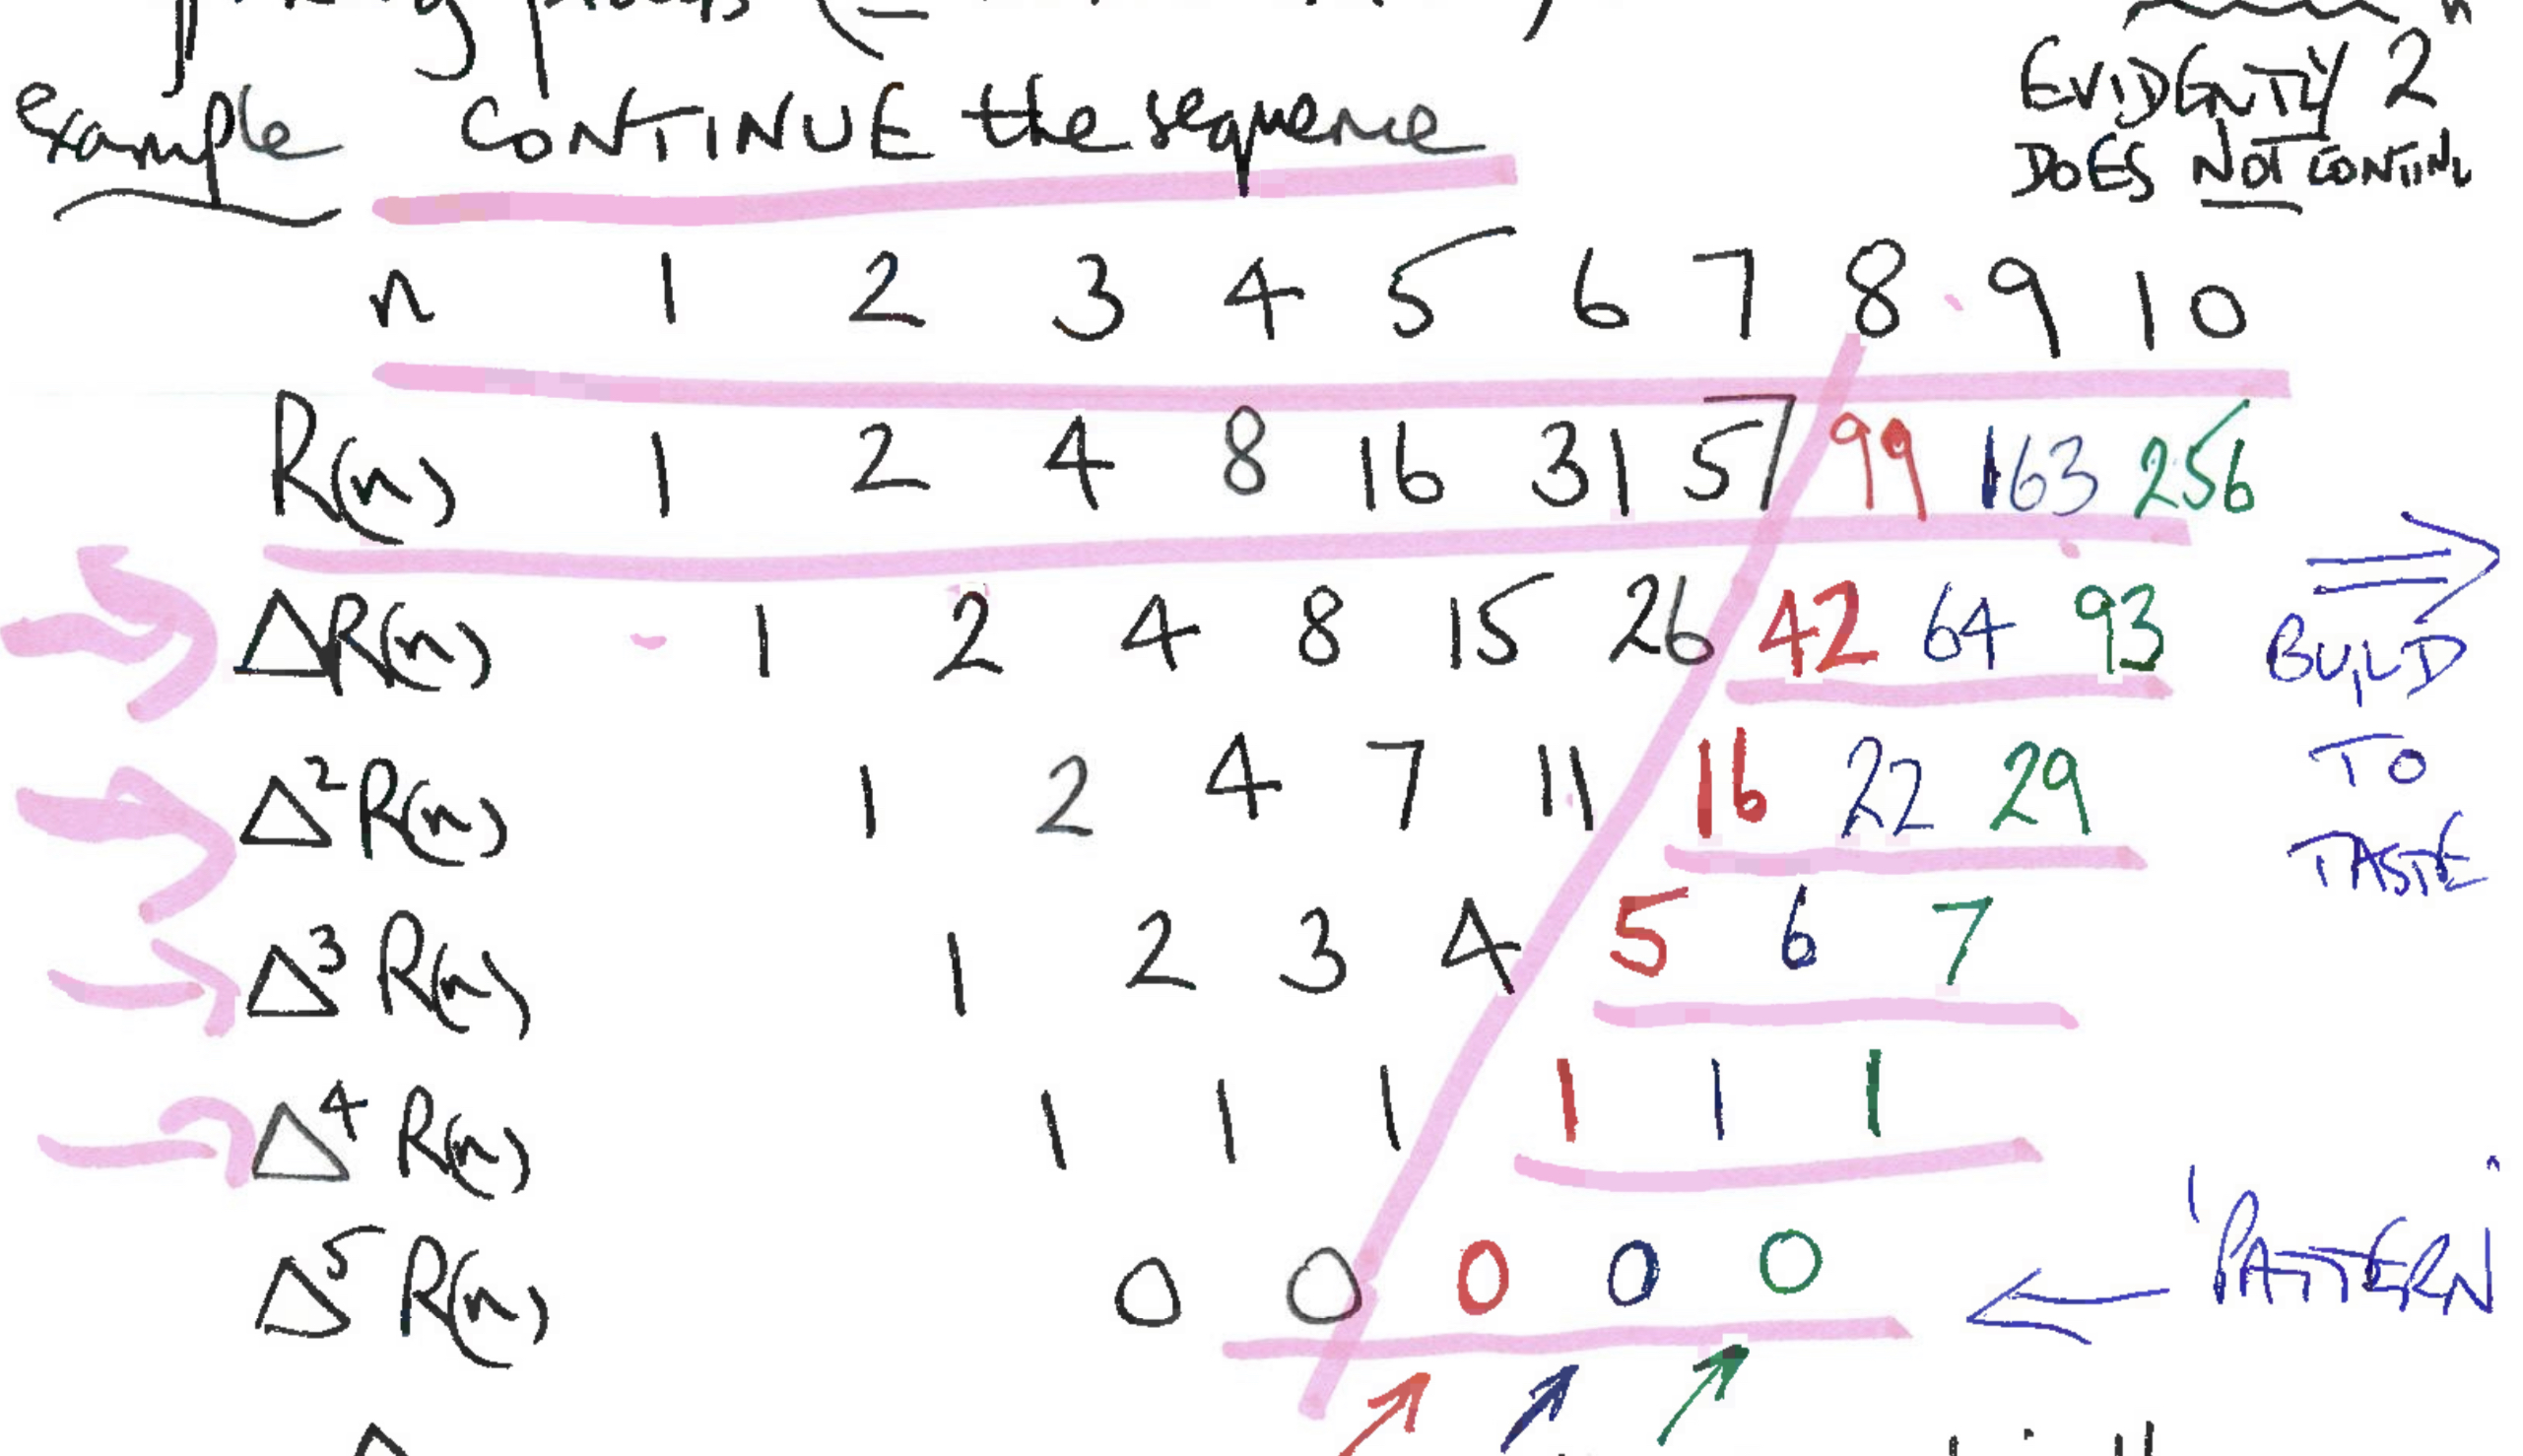 example CONTINUE the sequence
EVIDENTLY 2ⁿ
DOES NOT CONTINU
n 1 2 3 4 5 6 7 8 9 10
R(n) 1 2 4 8 16 31 57 99 163 256
ΔR(n) 1 2 4 8 15 26 42 64 93
Δ²R(n) 1 2 4 7 11 16 22 29
Δ³R(n) 1 2 3 4 5 6 7
Δ⁴R(n) 1 1 1 1 1 1
Δ⁵R(n) 0 0 0 0 0
⇒
BUILD
TO
TASTE
← 'PATTERN'